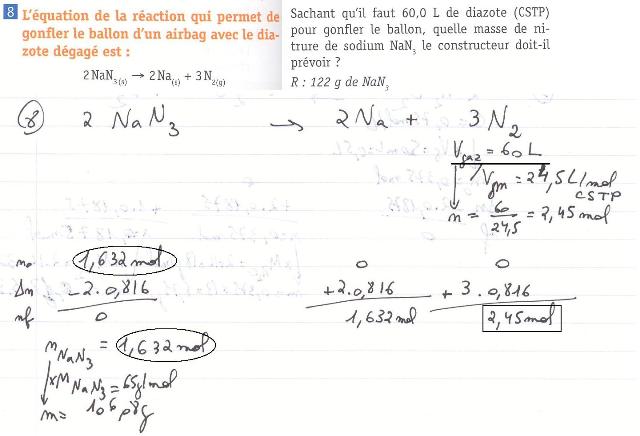 8 L'équation de la réaction qui permet de
gonfler le ballon d'un airbag avec le dia-
zote dégagé est :
2 NaN3(s) → 2 Na(s) + 3 N2(g)
Sachant qu'il faut 60,0 L de diazote (CSTP)
pour gonfler le ballon, quelle masse de ni-
trure de sodium NaN3 le constructeur doit-il
prévoir ?
R : 122 g de NaN3
8 2 NaN3 → 2 Na + 3 N2
Vgaz = 60 L
/Vgm = 24,5 L/mol
CSTP
n = 60/24,5 = 2,45 mol
no 1,632 mol 0 0
Δn - 2. 0,816 + 2. 0,816 + 3. 0,816
nf 0 1,632 mol 2,45 mol
nNaN3 = 1,632 mol
xMNaN3 = 65g/mol
m = 106,08g